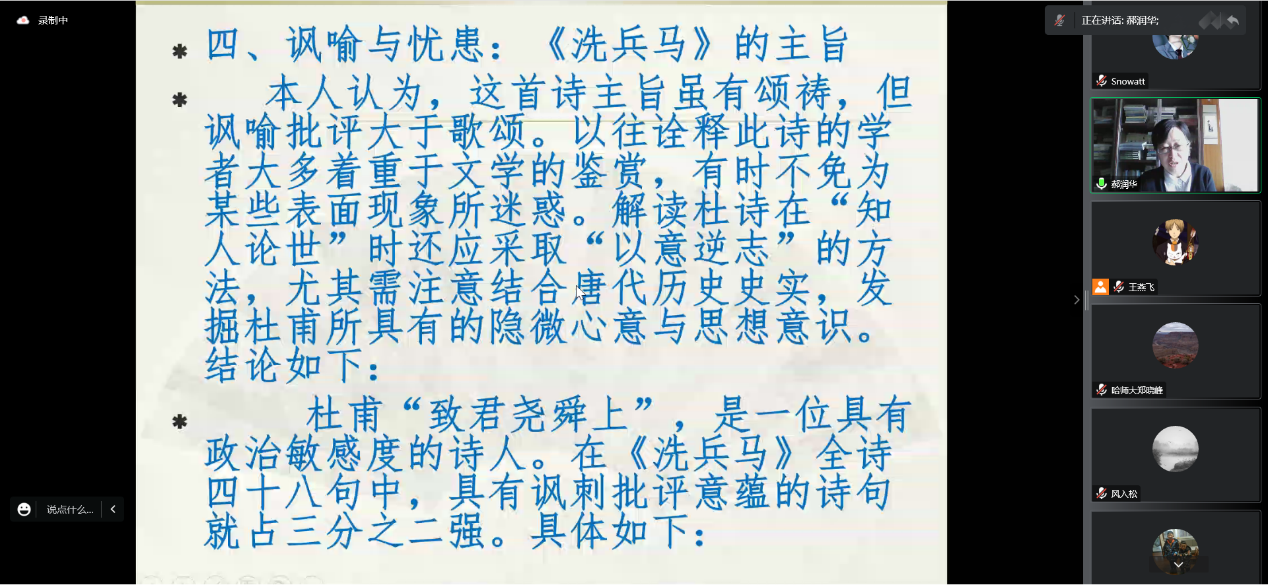 录制中
正在讲话: 郝润华;
四、讽喻与忧患：《洗兵马》的主旨
本人认为，这首诗主旨虽有颂祷，但
讽喻批评大于歌颂。以往诠释此诗的学
者大多着重于文学的鉴赏，有时不免为
某些表面现象所迷惑。解读杜诗在“知
人论世”时还应采取“以意逆志”的方
法，尤其需注意结合唐代历史史实，发
掘杜甫所具有的隐微心意与思想意识。
结论如下：
杜甫“致君尧舜上”，是一位具有
政治敏感度的诗人。在《洗兵马》全诗
四十八句中，具有讽刺批评意蕴的诗句
就占三分之二强。具体如下：
说点什么...
Snowatt
郝润华
王燕飞
哈师大郑晓峰
风入松